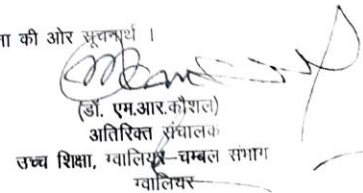 ना की ओर सूचनार्थ ।
(डॉ. एम.आर.कौशल)
अतिरिक्त संचालक
उच्च शिक्षा, ग्वालियर–चम्बल संभाग
ग्वालियर